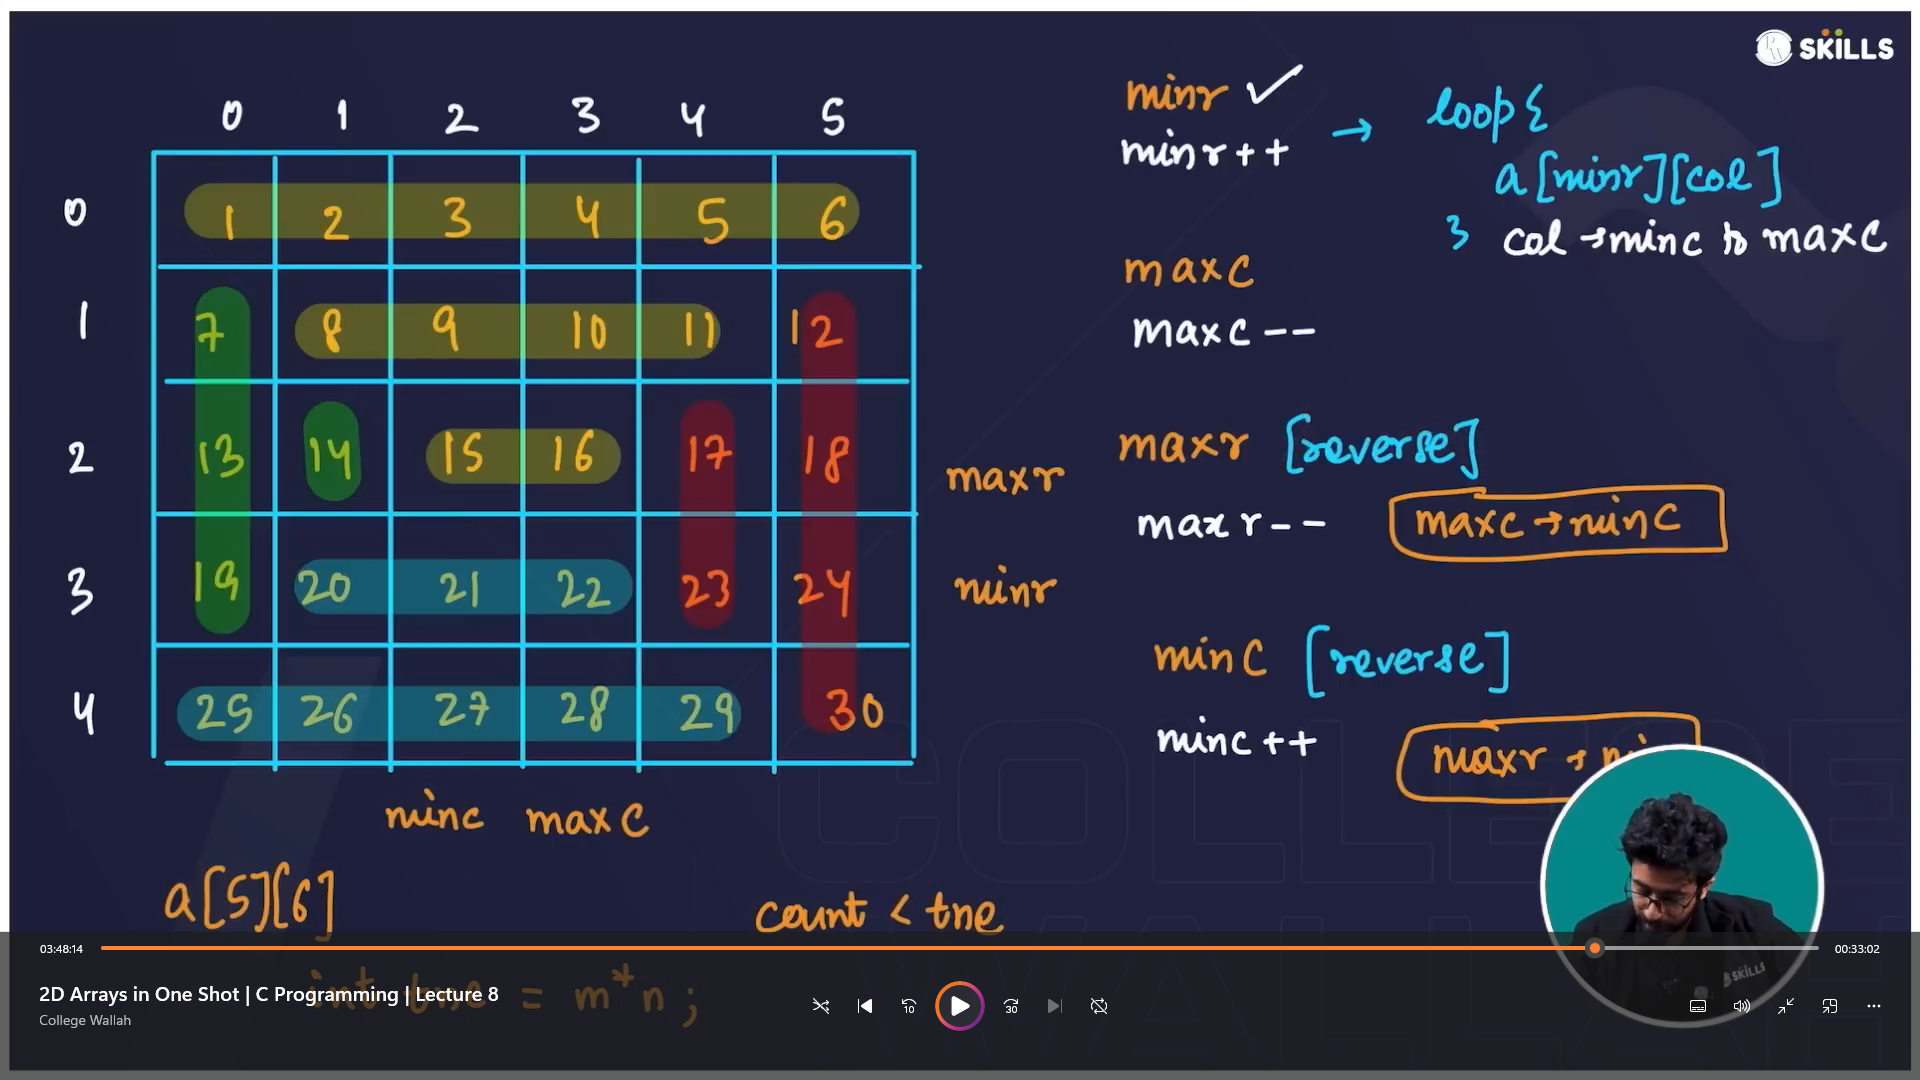 SKILLS
0 1 2 3 4 5
0 1 2 3 4 5 6
1 7 8 9 10 11 12
2 13 14 15 16 17 18
3 19 20 21 22 23 24
4 25 26 27 28 29 30
maxr
minr
minc maxc
a[5][6]
count < tne
int tne = m*n;
minr ✓
minr++ → loop{
a[minr][col]
} col → minc to maxc
maxc
maxc--
maxr [reverse]
maxr-- maxc → minc
minc [reverse]
minc++ maxr →
SKILLS
03:48:14
00:33:02
2D Arrays in One Shot | C Programming | Lecture 8
College Wallah
10
30